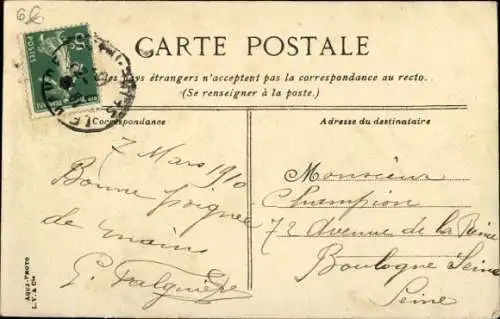 6
POSTES
CARTE POSTALE
pays étrangers n'acceptent pas la correspondance au recto.
(Se renseigner à la poste.)
Correspondance
Adresse du destinataire
7 Mars 1910
Bonne poignée
de mains
Monsieur
Champion
72 Avenue de la Reine
Boulogne Seine
Seine
AQUA-PHOTO
L.V. & Cie